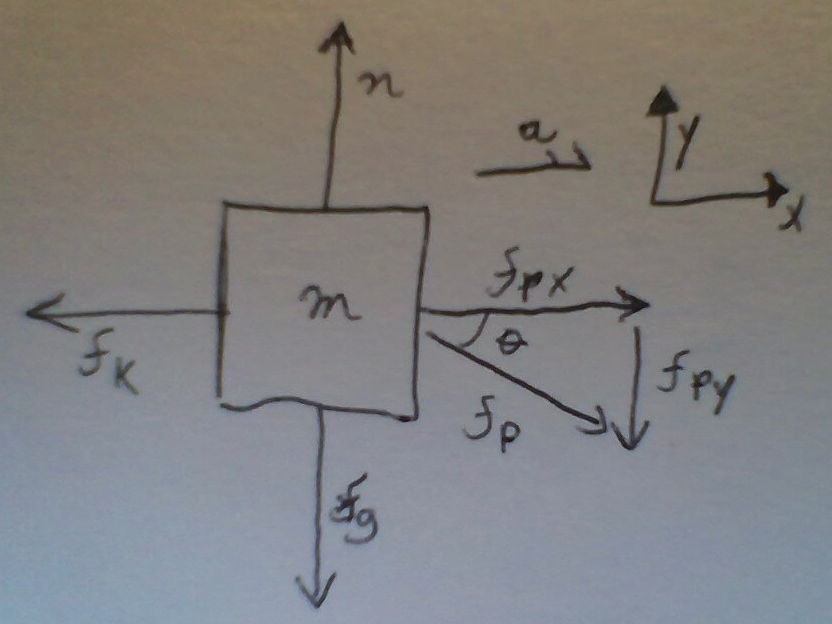 n
a
y
x
fpx
m
θ
fk
fpy
fp
fg